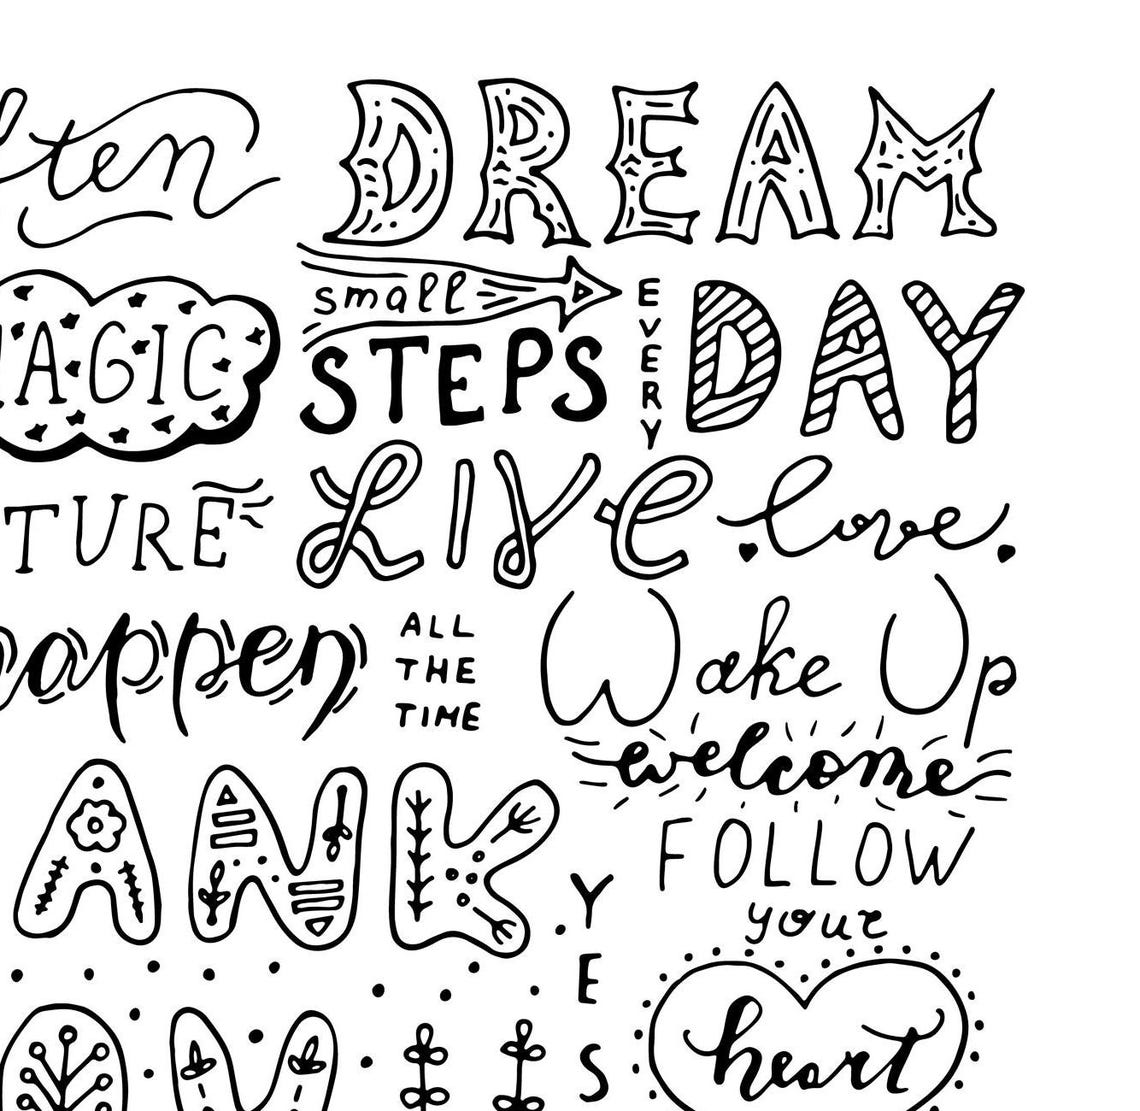 ften DREAM
small
STEPS
EVERY
DAY
MAGIC
TURE
LIVE
love
happen
ALL
THE
TIME
Wake Up
welcome
ANK
FOLLOW
your
heart
YES